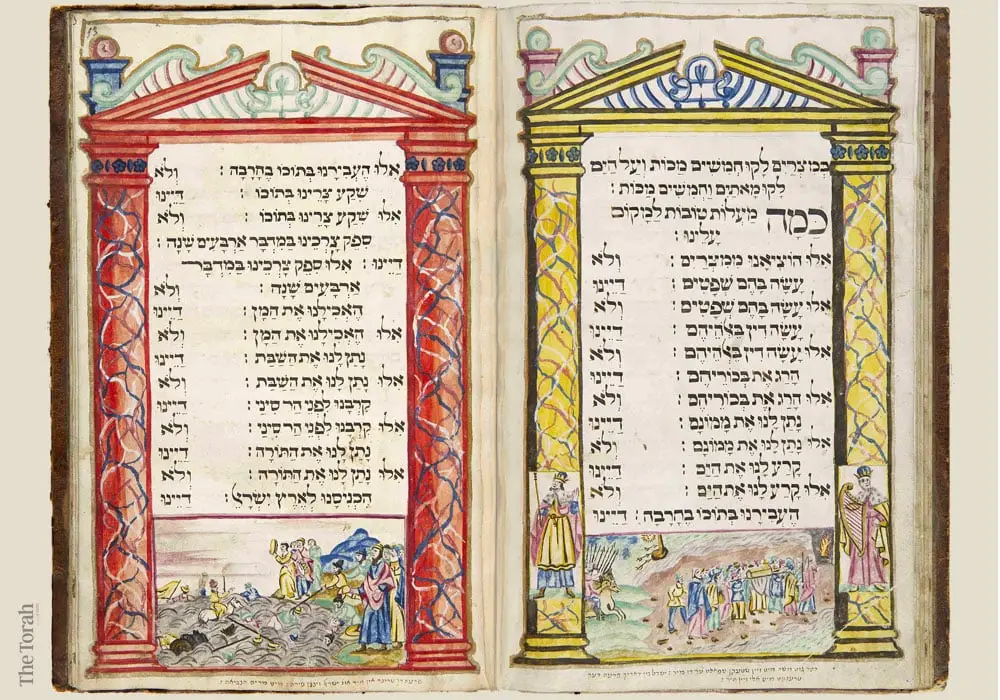 בְּמִצְרַיִם לָקוּ חֲמִשִּׁים מַכּוֹת וְעַל הַיָּם
לָקוּ מָאתַיִם וַחֲמִשִּׁים מַכּוֹת :
כַּמָּה מַעֲלוֹת טוֹבוֹת לַמָּקוֹם
עָלֵינוּ :
אִלּוּ הוֹצִיאָנוּ מִמִּצְרַיִם : וְלֹא
עָשָׂה בָהֶם שְׁפָטִים : דַּיֵּינוּ
אִלּוּ עָשָׂה בָהֶם שְׁפָטִים : וְלֹא
עָשָׂה דִין בֵּאלֹהֵיהֶם : דַּיֵּינוּ
אִלּוּ עָשָׂה דִין בֵּאלֹהֵיהֶם : וְלֹא
הָרַג אֶת בְּכוֹרֵיהֶם : דַּיֵּינוּ
אִלּוּ הָרַג אֶת בְּכוֹרֵיהֶם : וְלֹא
נָתַן לָנוּ אֶת מָמוֹנָם : דַּיֵּינוּ
אִלּוּ נָתַן לָנוּ אֶת מָמוֹנָם : וְלֹא
קָרַע לָנוּ אֶת הַיָּם : דַּיֵּינוּ
אִלּוּ קָרַע לָנוּ אֶת הַיָּם : וְלֹא
הֶעֱבִירָנוּ בְּתוֹכוֹ בֶּחָרָבָה : דַּיֵּינוּ
אִלּוּ הֶעֱבִירָנוּ בְּתוֹכוֹ בֶּחָרָבָה : וְלֹא
שִׁקַּע צָרֵינוּ בְּתוֹכוֹ : דַּיֵּינוּ
אִלּוּ שִׁקַּע צָרֵינוּ בְּתוֹכוֹ : וְלֹא
סִפֵּק צָרְכֵינוּ בַּמִּדְבָּר אַרְבָּעִים שָׁנָה :
דַּיֵּינוּ : אִלּוּ סִפֵּק צָרְכֵינוּ בַּמִּדְבָּר
אַרְבָּעִים שָׁנָה : וְלֹא
הֶאֱכִילָנוּ אֶת הַמָּן : דַּיֵּינוּ
אִלּוּ הֶאֱכִילָנוּ אֶת הַמָּן : וְלֹא
נָתַן לָנוּ אֶת הַשַּׁבָּת : דַּיֵּינוּ
אִלּוּ נָתַן לָנוּ אֶת הַשַּׁבָּת : וְלֹא
קֵרְבָנוּ לִפְנֵי הַר סִינַי : דַּיֵּינוּ
אִלּוּ קֵרְבָנוּ לִפְנֵי הַר סִינַי : וְלֹא
נָתַן לָנוּ אֶת הַתּוֹרָה : דַּיֵּינוּ
אִלּוּ נָתַן לָנוּ אֶת הַתּוֹרָה : וְלֹא
הִכְנִיסָנוּ לְאֶרֶץ יִשְׂרָאֵל : דַּיֵּינוּ
TheTorah.com